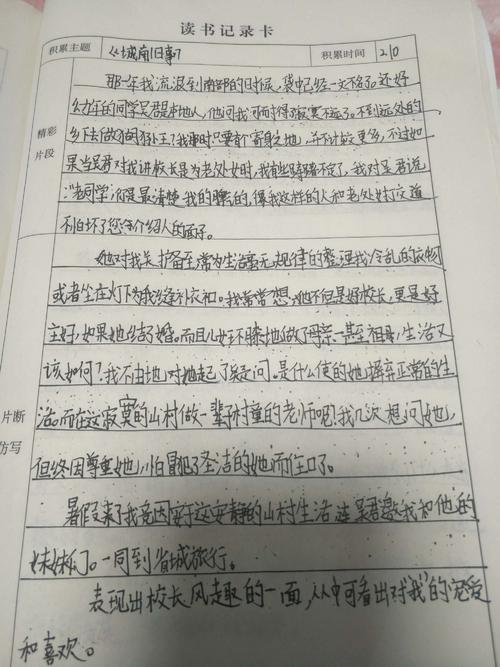 读书记录卡
积累主题 《城南旧事》 积累时间 210
精彩片段
那一年我流浪到南部的时候,袋中已经一文不名了。还好
幼年的同学吴君是本地人,他问我可耐得寂寞不远了。不到远处的
乡下去做猴的孩王?我那时只要有个寄身之地,并不计较更多,不过如
果当吴君对我讲校长是为老处女时,我有些踌躇不定了,我对吴君说
"老同学,你是最清楚我的脾气的,像我这样的人和老处女打交道
别怕坏了您等介绍人的面子。
她对我关护备至,常为生活毫无规律的整理我冷乱的衣物
或者坐在灯下为我缝补衣扣。我常常想,她不但是好校长,更是好
主妇,如果她结了婚。而且儿女环膝地做了母亲、甚至祖母,生活又
该如何?我不由地对她起了疑问。是什么使的她摒弃正常的生
活,而在这寂寞的山村做一辈孙村童的老师呢,我几次想问她,
但终因尊重她,怕冒犯了圣洁的她而住口了。
片断仿写
暑假来了我竟因安于这安静的山村生活连吴君邀我和他的
妹妹们。一同到省城旅行。
表现出校长风趣的一面,从中可看出对"我"的宠爱
和喜欢。